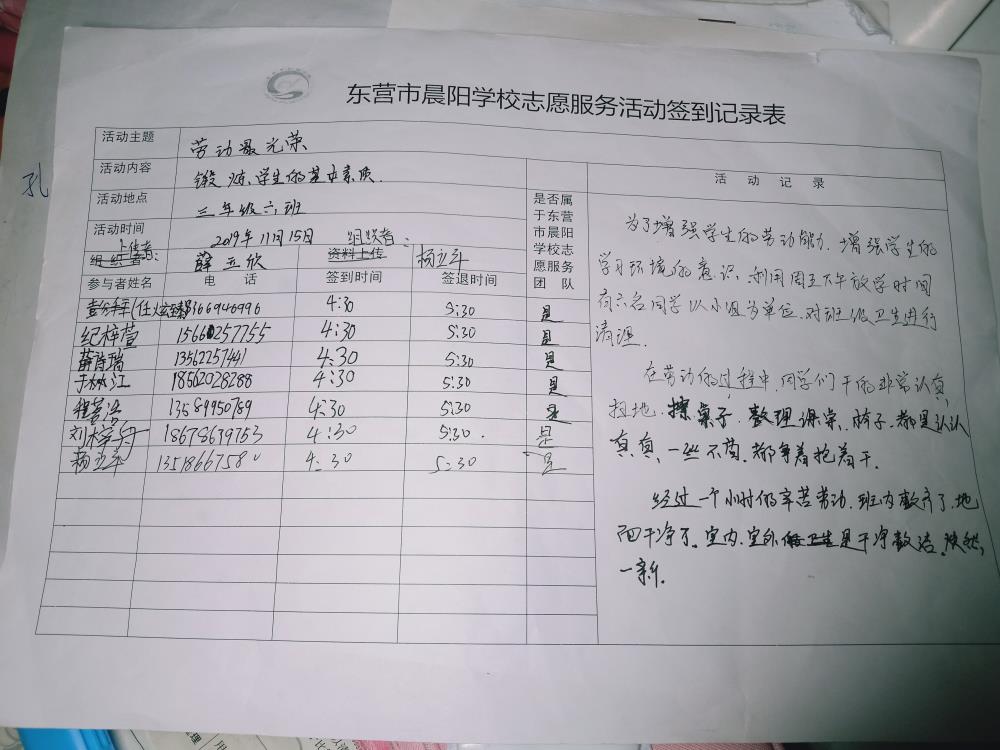 东营市晨阳学校志愿服务活动签到记录表
孔
活动主题 劳动最光荣
活动内容 锻炼学生的基本素质.
活动地点 三年级六班
活动时间 2019年11月15日 组织者:
上传者: 薛立欣 资料上传 杨立军
参与者姓名 电话 签到时间 签退时间
是否属
于东营
市晨阳
学校志
愿服务
团队
4:30 5:30 是
纪梓萱 15660257755 4:30 5:30 是
薛诗瑞 13562257441 4:30 5:30 是
于林江 18562028288 4:30 5:30 是
13589950789 4:30 5:30 是
刘梓舟 18678639753 4:30 5:30. 是
杨立军 4:30 5:30 是
活动记录
为了增强学生的劳动能力、增强学生的
学习环境的意识、利用周五下午放学时间
有六名同学以小组为单位、对班级卫生进行
清理.
在劳动的过程中,同学们干的非常认真,
扫地、擦桌子、整理课桌、椅子、都是认认
真真、一丝不苟、都争着抢着干.
经过一个小时的辛苦劳动,班内整齐了,地
面干净了。室内、室外的卫生是干净整洁、焕然
一新.